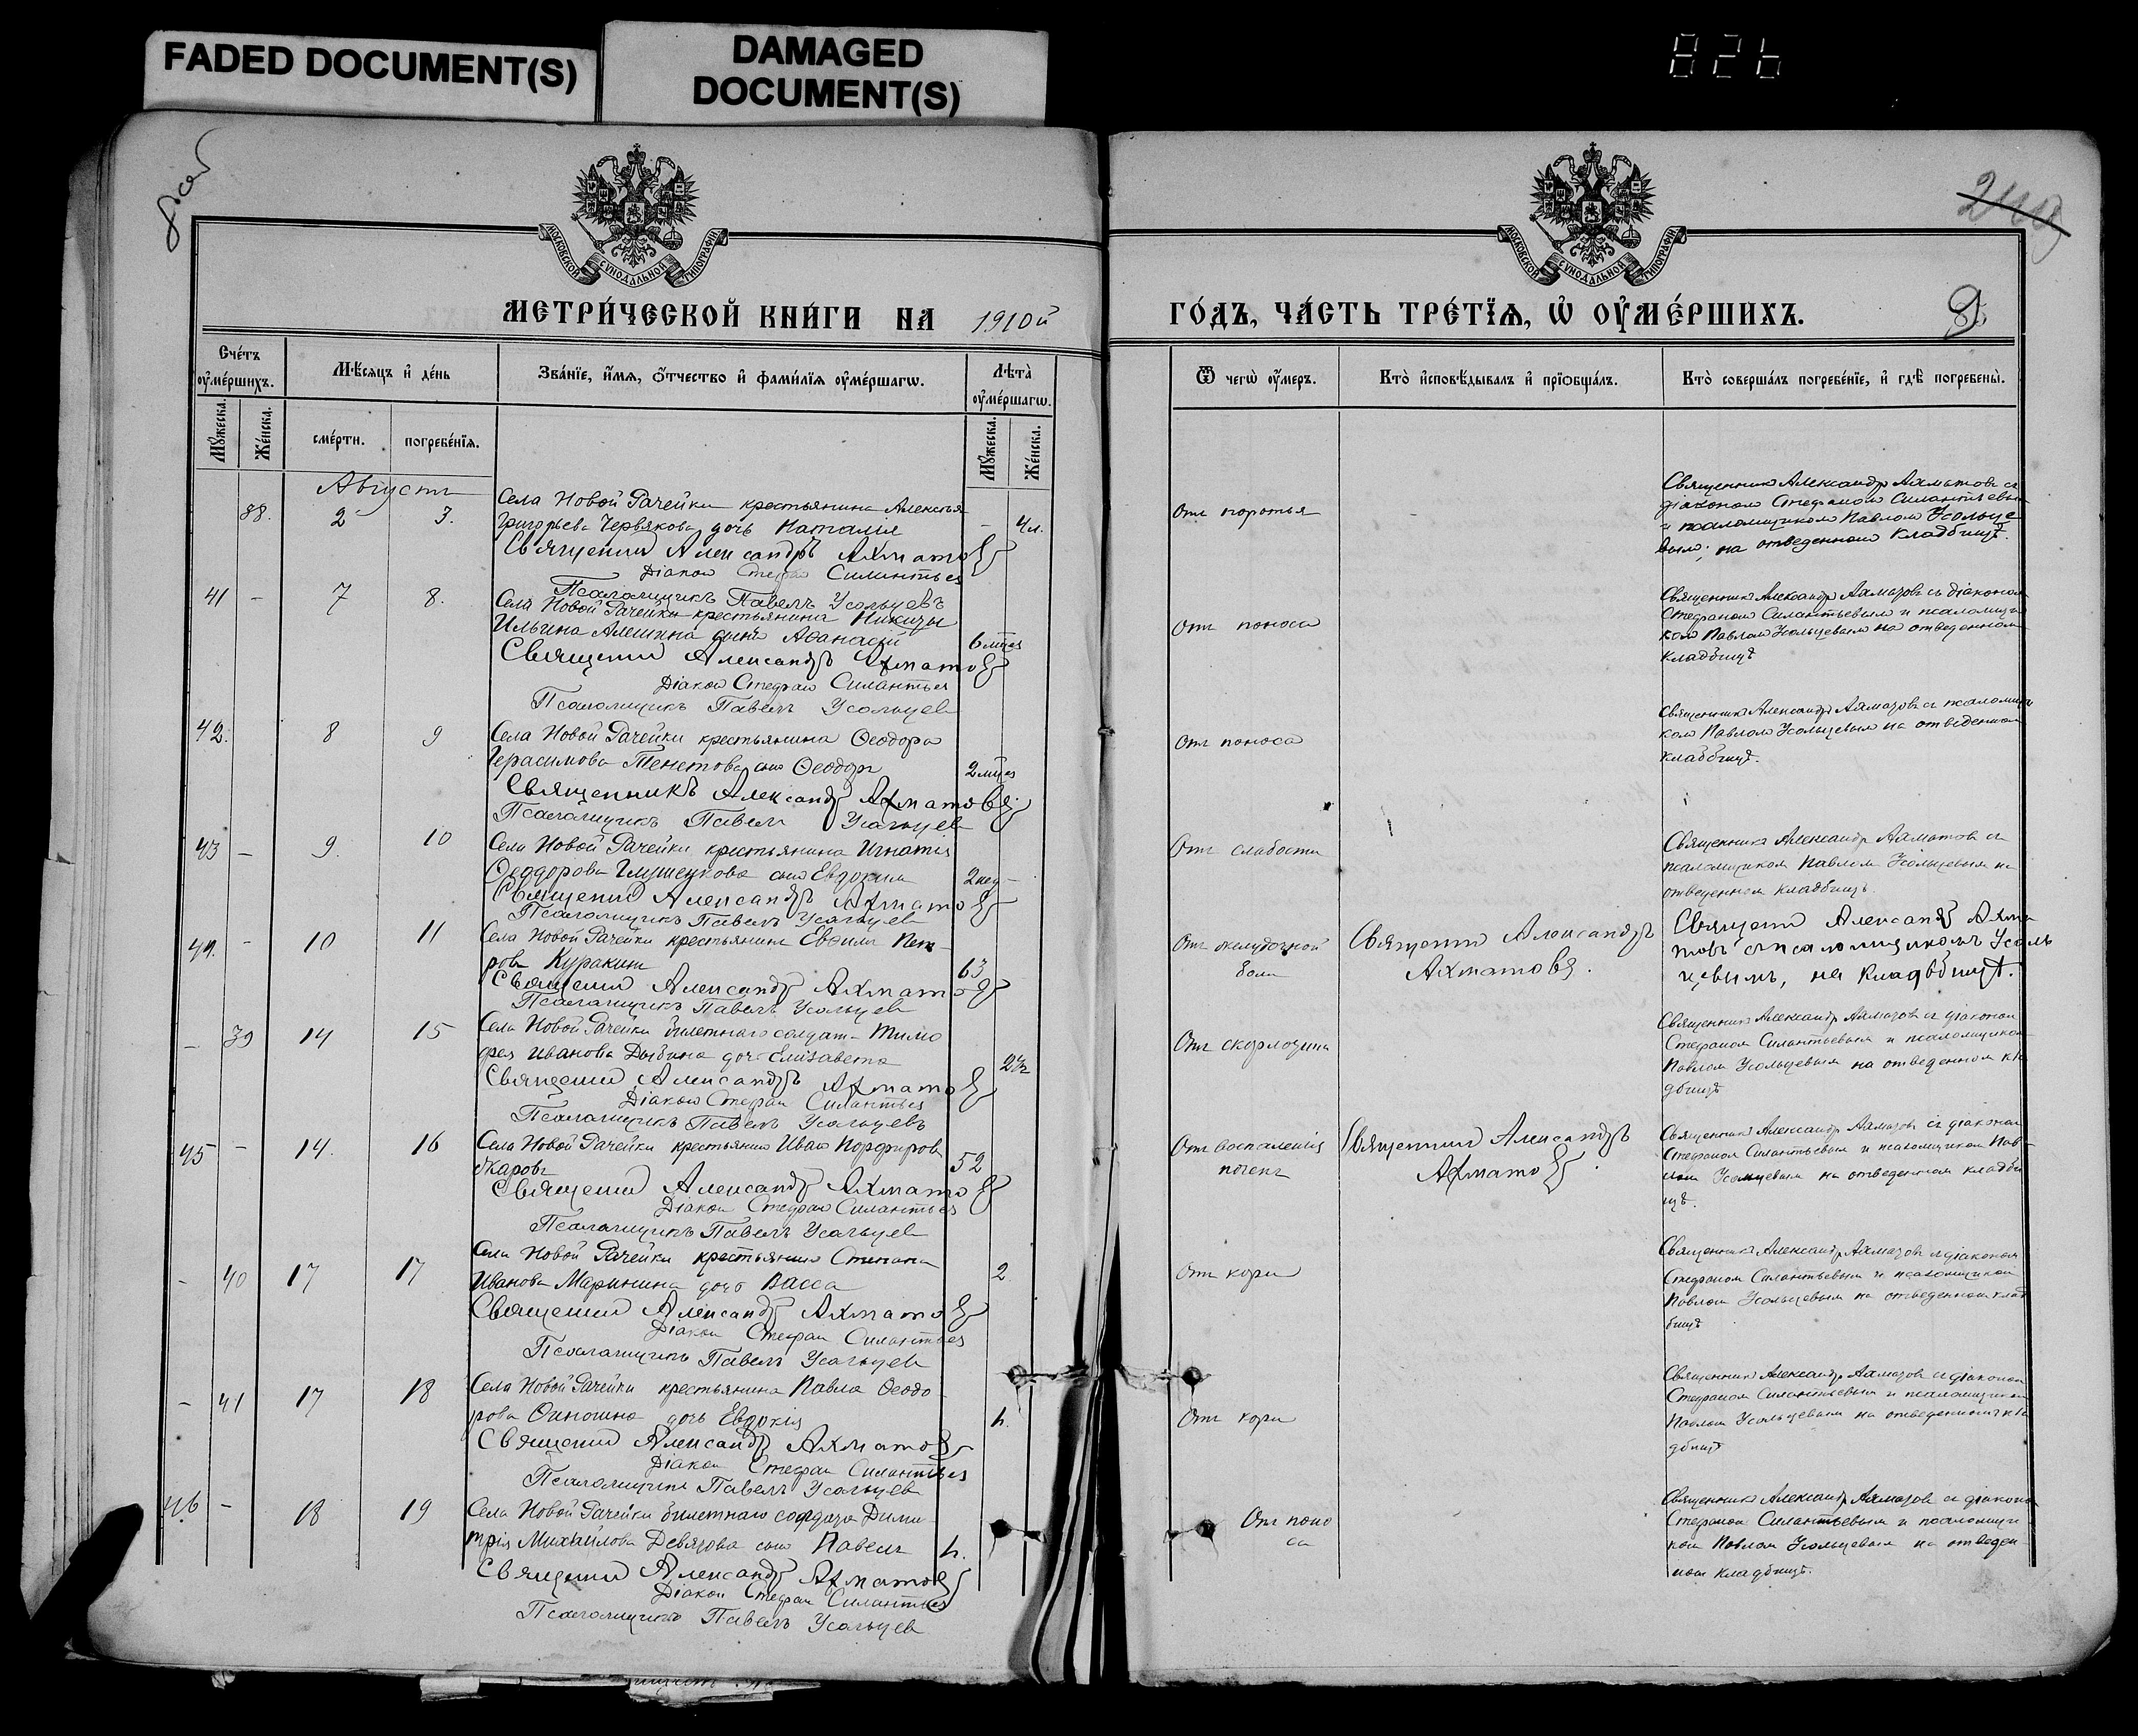 FADED DOCUMENT(S)
DAMAGED
DOCUMENT(S)
826
МОСКОВСКОЙ СѴНОДАЛЬНОЙ ТИПОГРАФІИ
МОСКОВСКОЙ СѴНОДАЛЬНОЙ ТИПОГРАФІИ
МЕТРИ́ЧЕСКОЙ КНИ́ГИ НА 1910й
ГО́ДЪ, ЧА́СТЬ ТРЕ́ТЇѦ, Ѡ҆ ОУ҆МЕ́РШИХЪ.
Сче́тъ оу҆ме́ршихъ.
Мѣ́сѧцъ и҆ де́нь
Зва́нїе, и҆́мѧ, ѻ҆́тчество и҆ фами́лїѧ оу҆ме́ршагѡ.
Лѣ́та̀ оу҆ме́ршагѡ.
Ѿ чегѡ̀ оу҆́меръ.
Кто̀ и҆сповѣ́дывалъ и҆ прїѻбща́лъ.
Кто̀ соверша́лъ погребе́нїе, и҆ гдѣ̀ погребены̀.
Мꙋ́жеска.
Же́нска.
сме́рти.
погребе́нїѧ.
Мꙋ́жеска.
Же́нска.
Августъ
88. 2 3. Села Новой Рачейки крестьянина Алексѣя
Григорьева Червякова дочь Наталія - 4 л.
Священникъ Александръ Ахматовъ
Діаконъ Стефанъ Силантьев
Псаломщикъ Павелъ Усольцевъ
Священникъ Александръ Ахматовъ съ
діакономъ Стефаномъ Силантьевы
и псаломщикомъ Павломъ Усольце
вымъ; на отведенномъ кладбищѣ.
41 - 7 8. Села Новой Рачейки крестьянина Никиты
Ильина Алешина сынъ Аѳанасій 6 мцев
Священникъ Александръ Ахматовъ
Діаконъ Стефанъ Силантьев
Псаломщикъ Павелъ Усольцев
Отъ поноса
Священникъ Александръ Ахматовъ съ діаконом
Стефаномъ Силантьевымъ и псаломщи
комъ Павломъ Усольцевымъ на отведенномъ
кладбищѣ
42. 8 9 Села Новой Рачейки крестьянина Ѳеодора
Герасимова Тенетова сынъ Ѳеодоръ 2 мцев
Священникъ Александръ Ахматовъ
Псаломщикъ Павелъ Усольцев
Отъ поноса
Священникъ Александръ Ахматовъ съ псаломщи
комъ Павломъ Усольцевымъ на отведенном
кладбищѣ.
43 - 9. 10 Села Новой Рачейки крестьянина Игнатія
Ѳеодорова сынъ Евдокимъ 2 нед
Священникъ Александръ Ахматовъ
Псаломщикъ Павелъ Усольцев
Отъ слабости
Священникъ Александръ Ахматовъ съ
псаломщикомъ Павломъ Усольцевымъ на
отведенномъ кладбищѣ.
44. - 10 11 Села Новой Рачейки крестьянинъ Пет
ровъ Куракинъ 63
Священникъ Александръ Ахматовъ
Псаломщикъ Павелъ Усольцев
Отъ желудочной
боли
Священникъ Александръ
Ахматовъ.
Священникъ Александръ Ахма
товъ съ псаломщикомъ Усоль
цевымъ, на кладбищѣ.
- 39 14 15 Села Новой Рачейки билетнаго солдат Тимо
фея Иванова дочь Елизавета
Священникъ Александръ Ахматовъ
Діаконъ Стефанъ Силантьев
Псаломщикъ Павелъ Усольцевъ
Отъ скарлатины
Священникъ Александръ Ахматовъ съ діакономъ
Стефаномъ Силантьевымъ и псаломщиком
Павломъ Усольцевымъ на отведенномъ кла
дбищѣ
45 - 14. 16 Села Новой Рачейки крестьянинъ Иванъ Порфировъ
52
Священникъ Александръ Ахматовъ
Діаконъ Стефанъ Силантьев
Псаломщикъ Павелъ Усольцев
Отъ воспаленія
Священникъ Александръ
Ахматовъ.
Священникъ Александръ Ахматовъ съ діаконом
Стефаномъ Силантьевымъ и псаломщикомъ Пав
ломъ Усольцевымъ на отведенномъ кладби
щѣ.
- 40 17 17 Села Новой Рачейки крестьянина Степана
Иванова Маринина дочь Васса 2.
Священникъ Александръ Ахматовъ
Діаконъ Стефанъ Силантьев
Псаломщикъ Павелъ Усольцев
Отъ кори
Священникъ Александръ Ахматовъ съ діакономъ
Стефаномъ Силантьевымъ и псаломщикомъ
Павломъ Усольцевымъ на отведенномъ клад
бищѣ
- 41 17 18 Села Новой Рачейки крестьянина Павла Ѳеодо
рова дочь Евдокія
Священникъ Александръ Ахматовъ
Діаконъ Стефанъ Силантьев
Псаломщикъ Павелъ Усольцев
Отъ кори
Священникъ Александръ Ахматовъ съ діаконом
Стефаномъ Силантьевымъ и псаломщиком
Павломъ Усольцевымъ на отведенномъ кла
дбищѣ
46 - 18 19 Села Новой Рачейки билетнаго солдата Дими
трія Михайлова Девятова сынъ Павелъ
Священникъ Александръ Ахматовъ
Діаконъ Стефанъ Силантьев
Псаломщикъ Павелъ Усольцев
Отъ поно
са
Священникъ Александръ Ахматовъ съ діаконо
Стефаномъ Силантьевымъ и псаломщи
комъ Павломъ Усольцевымъ на отведен
номъ кладбищѣ.